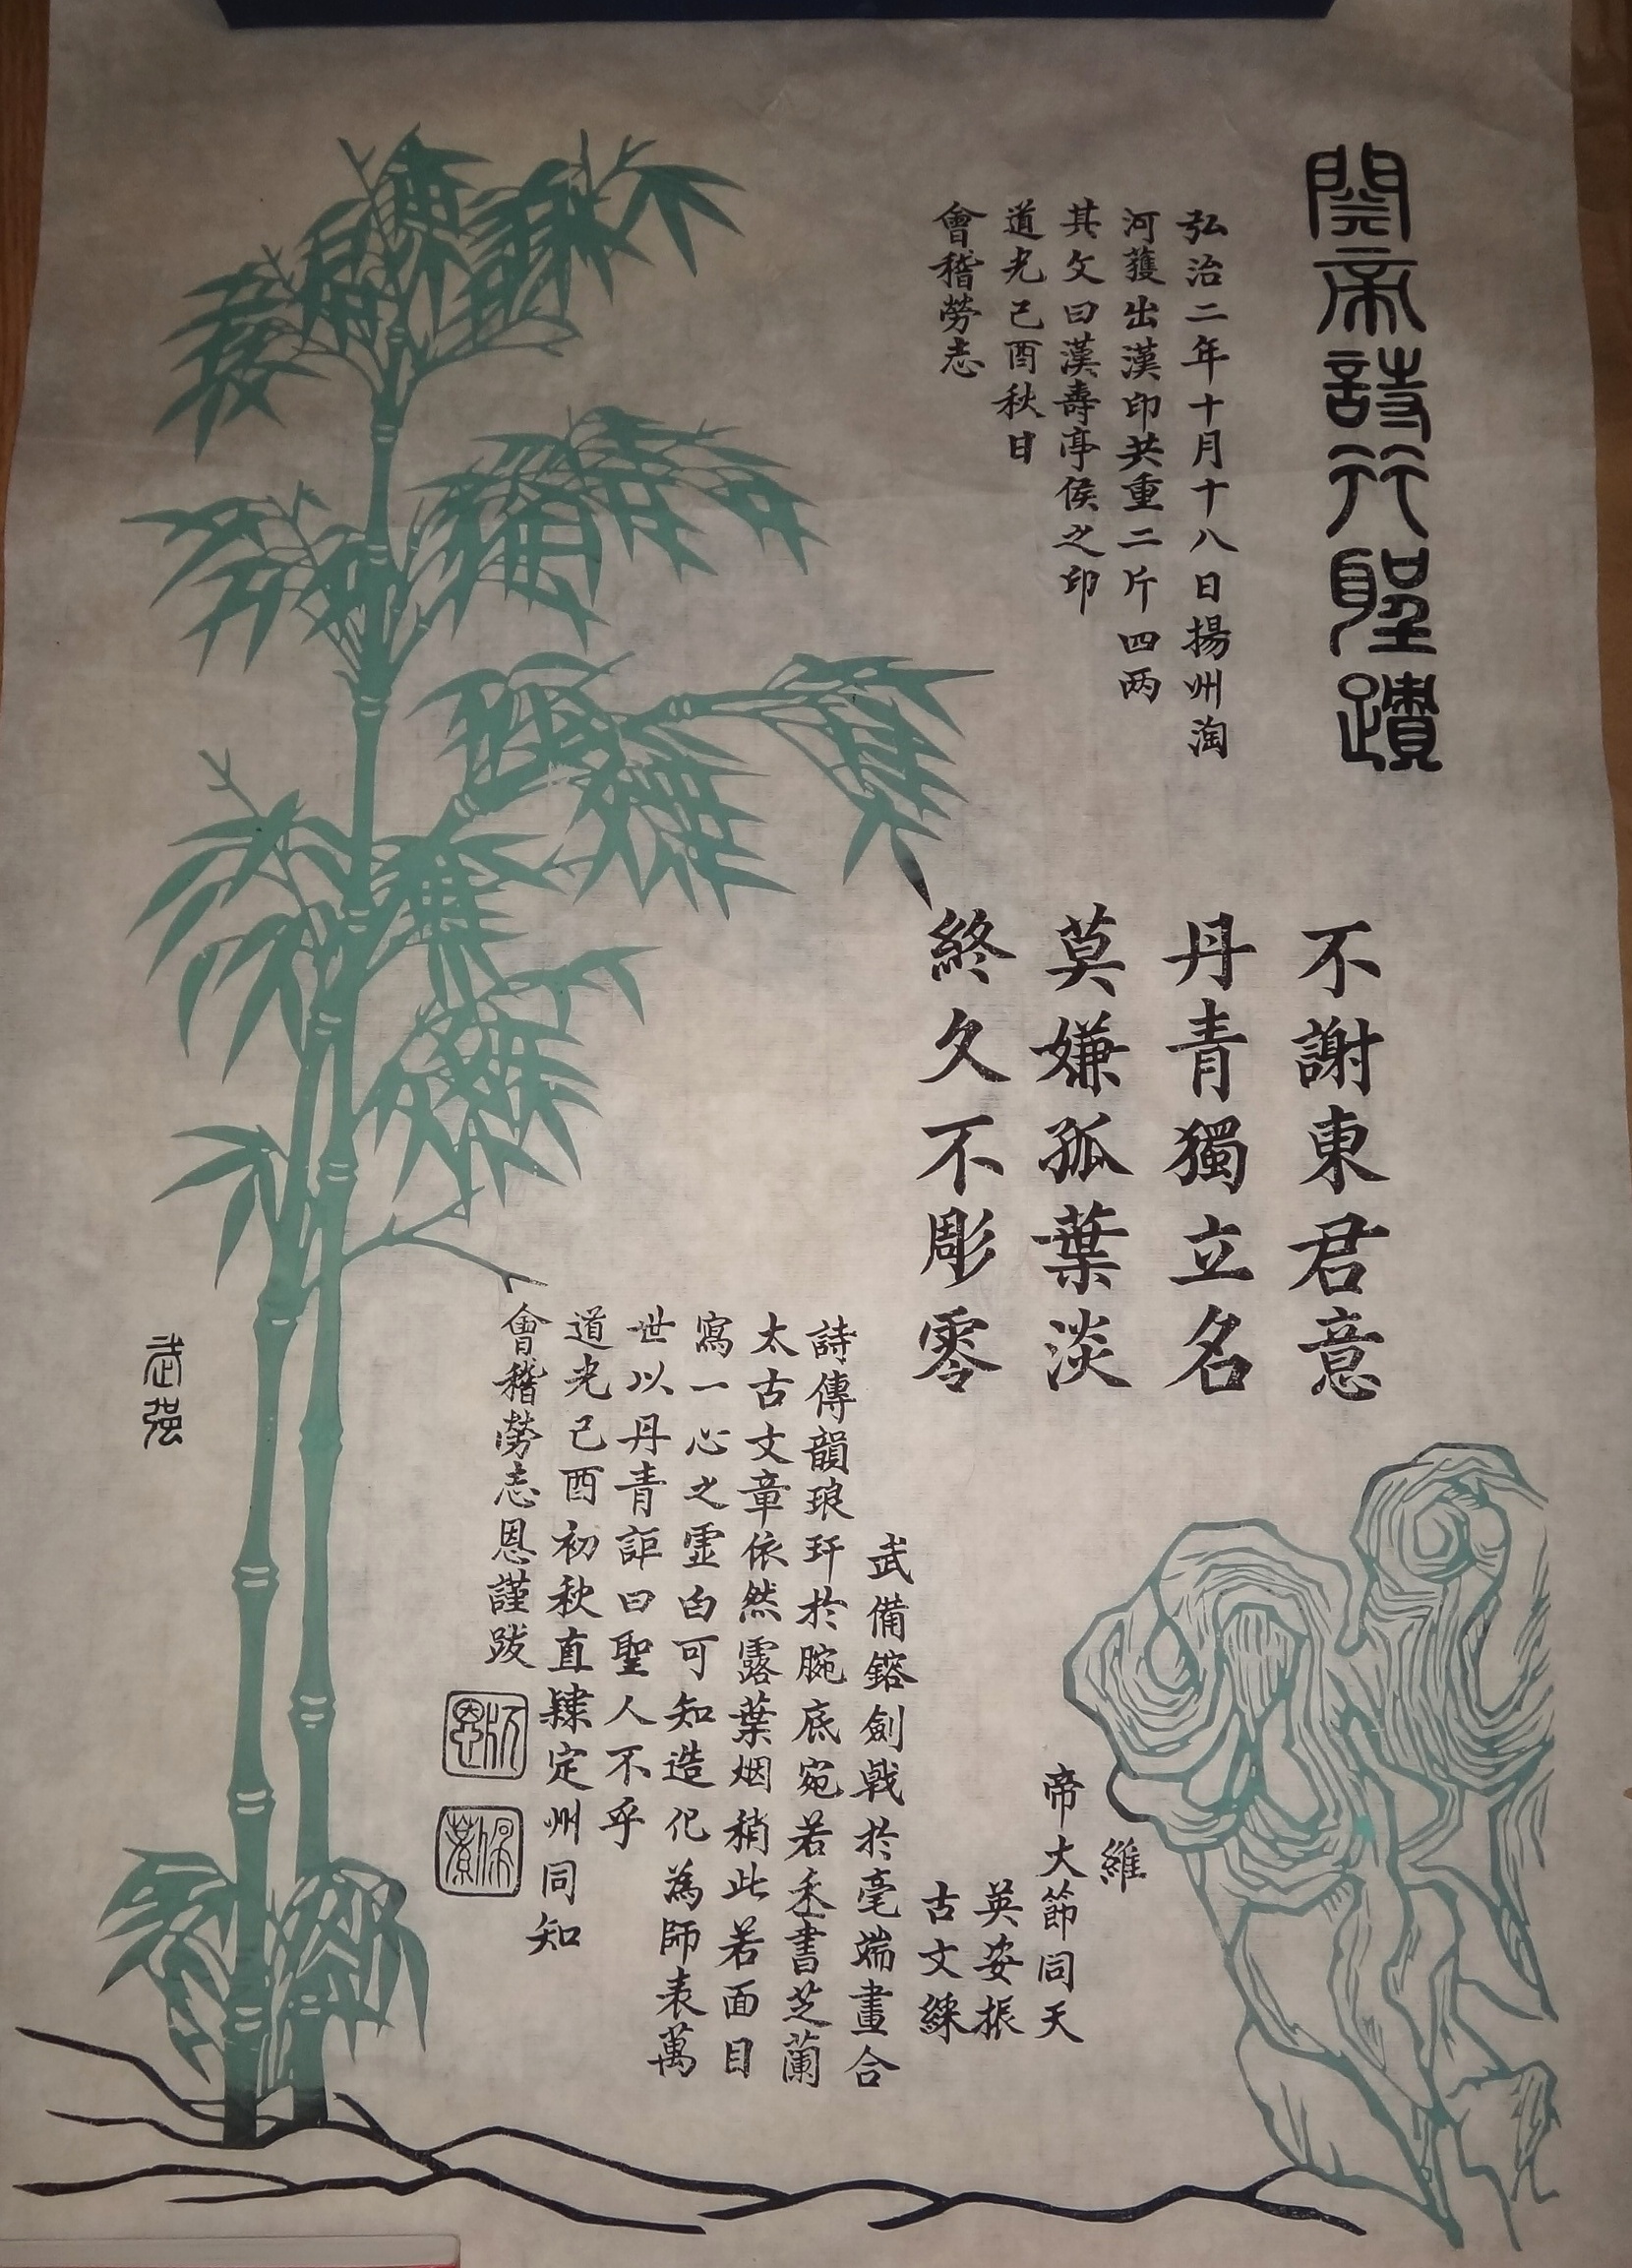 關帝詩竹聖蹟
弘治二年十月十八日揚州淘
河獲出漢印共重二斤四两
其文曰漢壽亭侯之印
道光己酉秋日
會稽勞志
不謝東君意
丹青獨立名
莫嫌孤葉淡
終久不彫零
維
帝大節同天
英姿振
古文練
武備鎔劍戟於毫端畫合
詩傳韻琅玕於腕底宛若丞書芝蘭
太古文章依然露葉烟稍此若面目
寫一心之靈白可知造化為師表萬
世以丹青詎曰聖人不乎
道光己酉初秋直隸定州同知
會稽勞志恩謹跋
武强